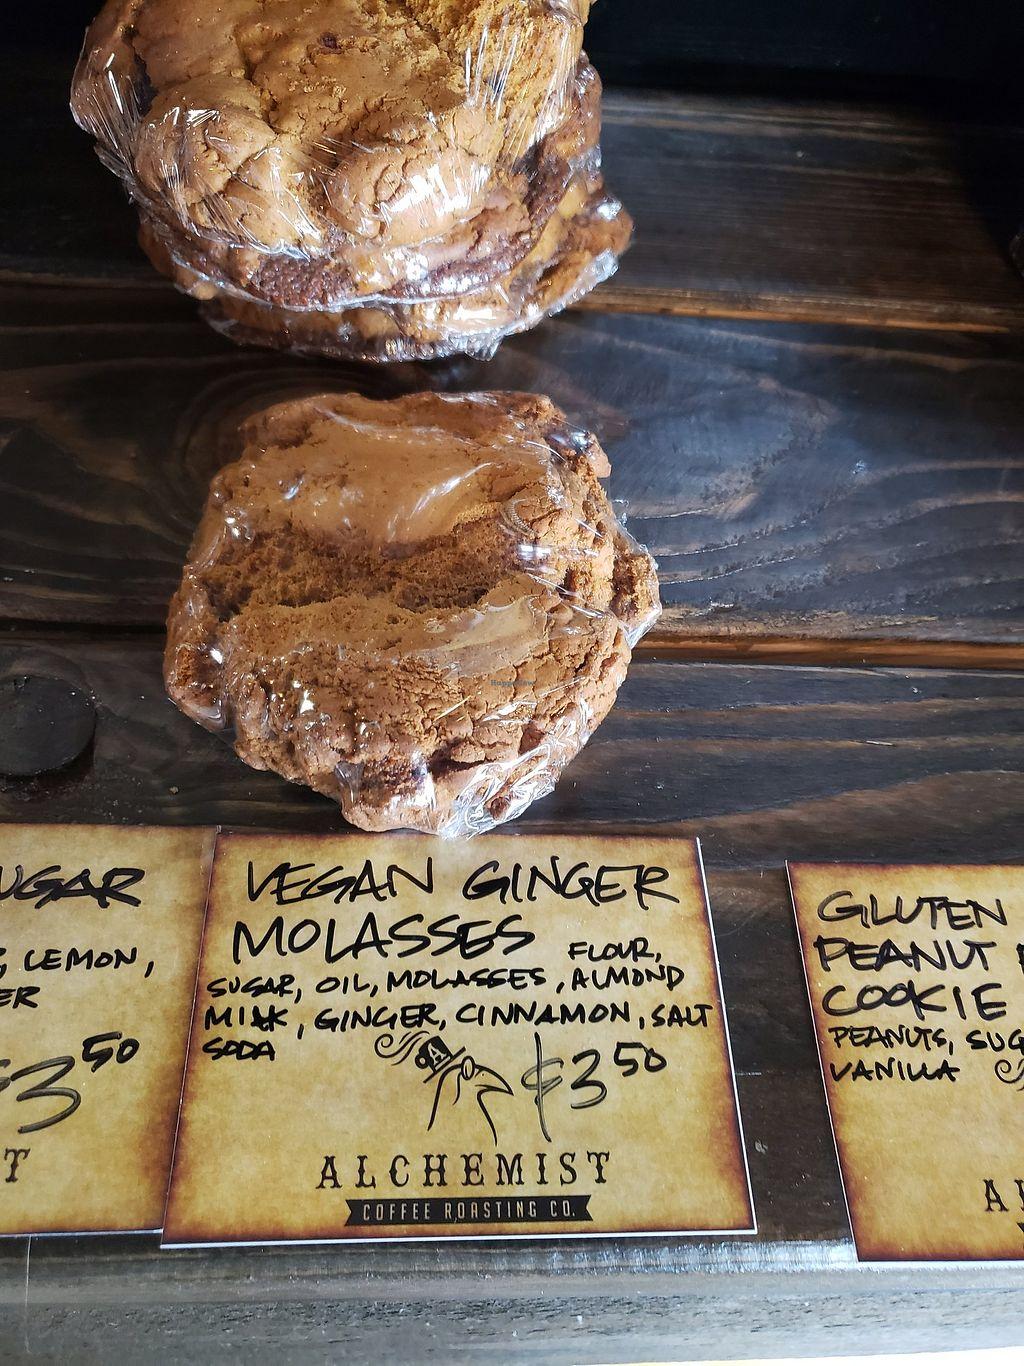 UGAR
LEMON,
ER
$3 50
T
VEGAN GINGER
MOLASSES FLOUR,
SUGAR, OIL, MOLASSES, ALMOND
MILK, GINGER, CINNAMON, SALT
SODA
A
$3 50
ALCHEMIST
COFFEE ROASTING CO.
GLUTEN
PEANUT
COOKIE
PEANUTS, SUG
VANILLA
AL
HappyCow